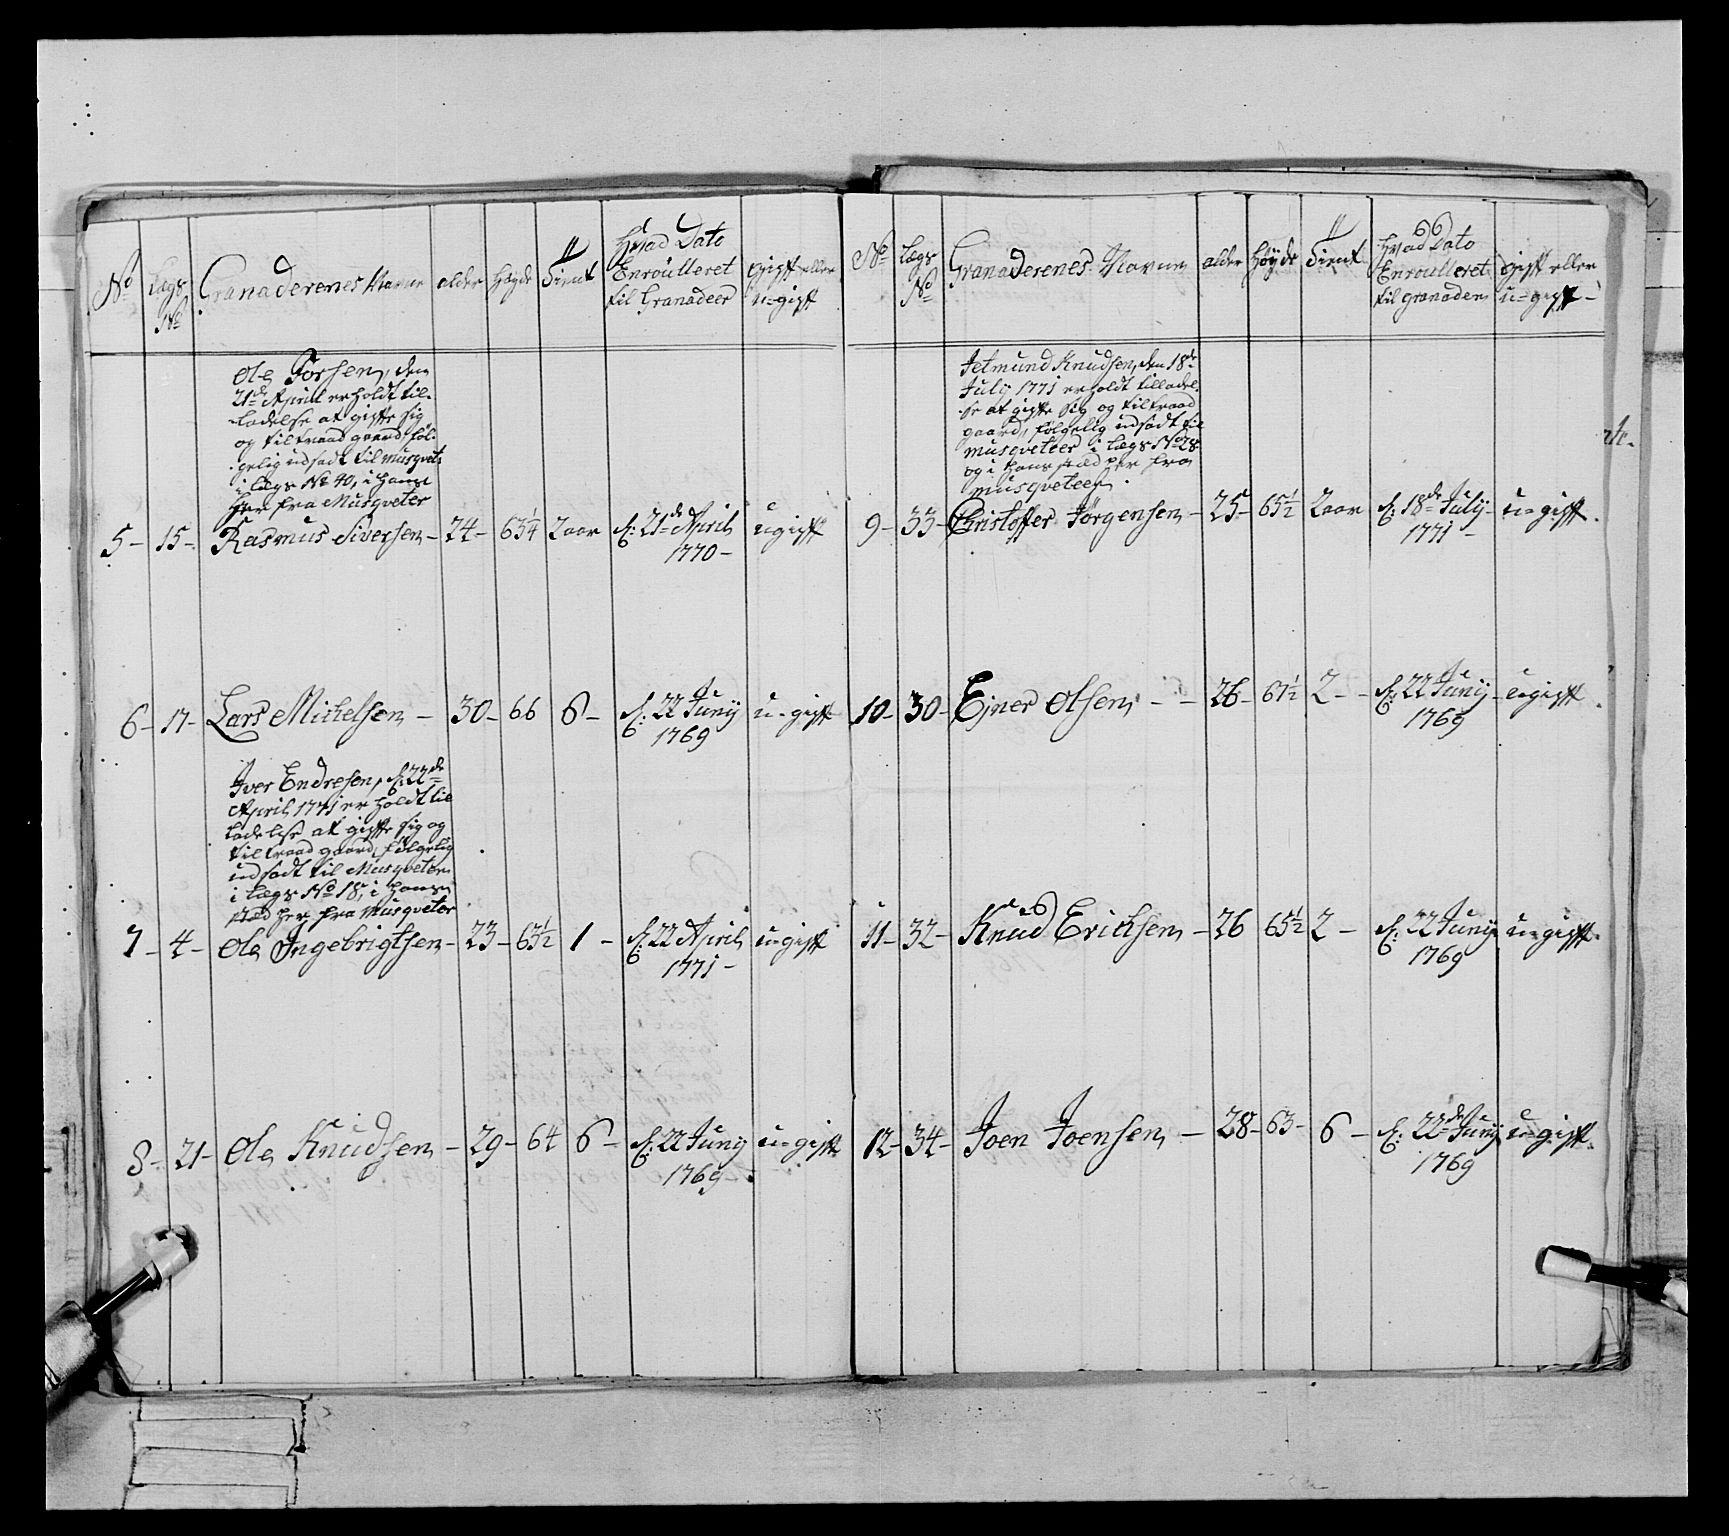 No
Lægs No
Granaderenes Navne
alder
Høyde
Tient
Hvad Dato
Enroulleret
til Granadeer
gift eller
u-gift
Ole Torsen, den
21de April erholdt til-
ladelse at gifte sig
og tiltraad gaard, føl-
gelig udsadt til musqvet:
i lægs No 40, i hans
her fra Musqveter
5 - 15 - Rasmus Siversen - 24 - 63¼ 2 aar d: 21de April ugift
1770 -
6 - 17 - Lars Michelsen - 30 - 66 6 - d: 22 Juny u-gift
1769
Iver Endresen, d: 22de
April 1771 erholdt til
ladelse at gifte sig og
tiltraad gaard, følgelig
udsadt til Musqveteer
i lægs No 18, i hans
stæd her fra Musqveter
7 - 4 - Ole Ingebrigtsen - 23 - 63½ 1 - d: 22 April u-gift
1771 -
8 - 21 - Ole Knudsen - 29 - 64 6 - d: 22 Juny u-gift
1769 -
No
Lægs
No
Granaderenes Navne
alder
Høyde
Tient
Hvad Dato
Enroulleret
til granaden
gift eller
u-gift -
Jetmund Knudsen, den 18de
July 1771 erholdt tilladel-
se at gifte sig og tiltraad
gaard, følgelig udsadt til
musqveteer i lægs No 28
og i hans stæd her fra
musqveteer.
9 - 33 - Christoffer Jørgensen - 25 - 65½ 2 aar d: 18de July u-gift.
1771 -
10 - 30 - Ejner Olsen - - 26 - 67½ 2 - - d: 22 Juny - u-gift
1769
11 - 32 - Knud Ericksen - 26 65½ 2 - d: 22 Juny u-gift.
1769
12 - 34 - Joen Joensen - 28 - 63 - 6 - d: 22de Juny u-gift.
1769